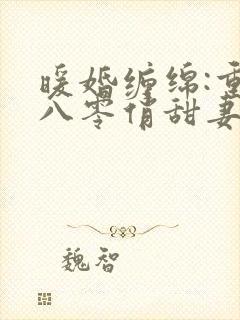 暖婚缠绵:重
八零俏甜妻
魏智